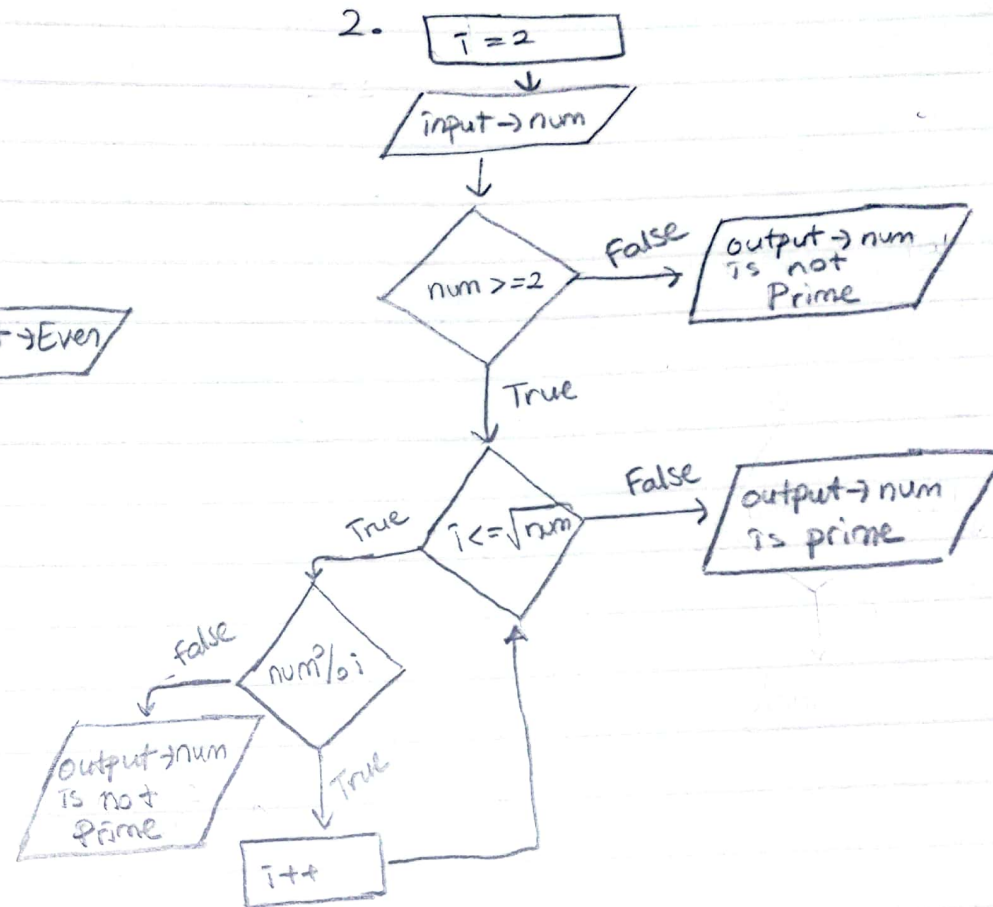 2.
i = 2
input → num
num >= 2
False
output → num
is not
Prime
→ Even
True
i <= √num
False
output → num
is prime
True
num % i
False
output → num
is not
Prime
True
i++